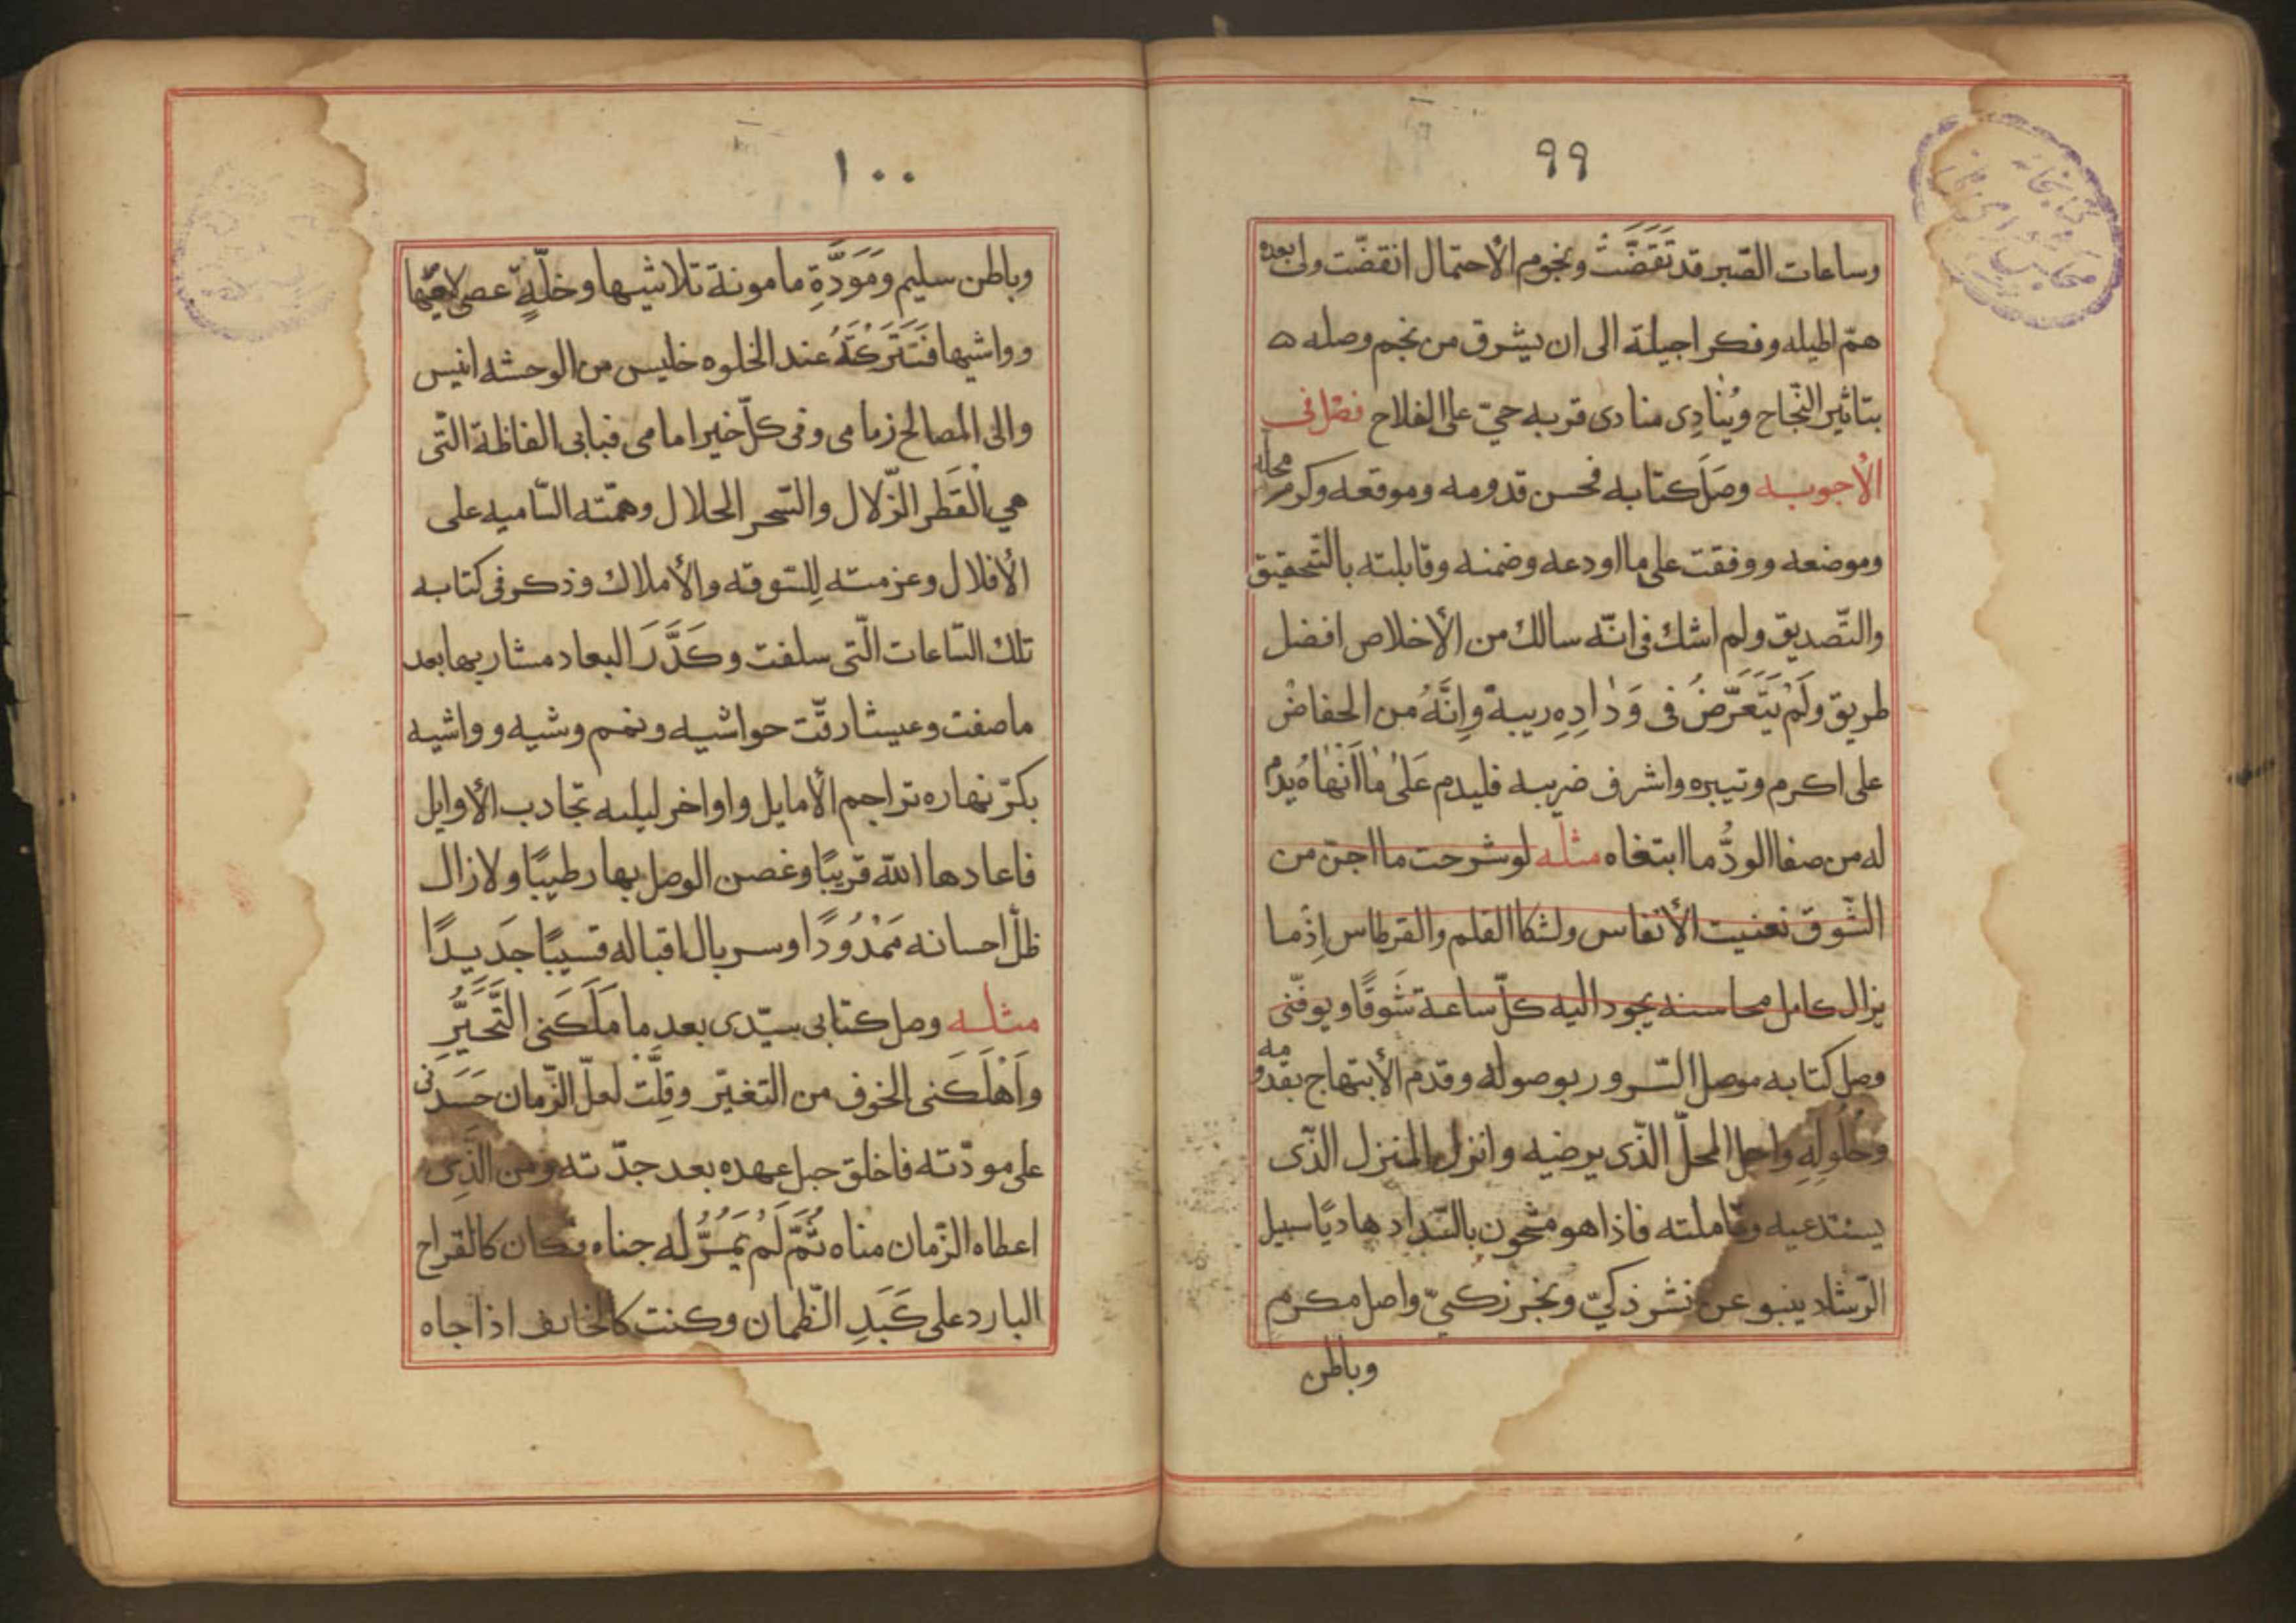 ٩٩
وساعات الصّبر قد تَقَضَّتْ ونجوم الأحتمال انقضّت ولى بعده
همّ اطيله وفكر اجيلة الى ان يشرق من نجم وصله ه
بتاثير النّجاح ويُنادِى منادى قربه حيّ على الفلاح فصل فى
الأجوبه وصَل كتابه فحسن قدومه وموقعه وكرم محله
وموضعه ووقفت على ما اودعه وضمنه وقابلته بالتّحقيق
والتّصديق ولم اشك فى انّه سالك من الأخلاص افضل
طريق ولَمْ يَتَّعَرَّضُ فى وَدادِهِ ريبة وإنَّهُ من الحفاض
على اكرم وتيره واشرف ضريبه فليدم عَلىٰ ما اَنْهاهُ يدم
له من صفا الودُّ ما ابتغاه مثله لو شرحت ما اجنّ من
الشّوق نعنيت الأنفاس ولشكا القلم والقرطاس اِذْ ما
يزال كامل محاسنه يجود اليه كلّ ساعة شَوقًا ويوفّنى
وصل كتابه موصل السّرور بوصوله وقدم الأبتهاج بقدومه
وحُلُولِهِ واحل المحلّ الذّى يرضيه وانزل بالمنزل الذّى
يستدعيه وتاملته فاذا هو مشحون بالسّداد هاديًا سبيل
الرّشاد ينبو عن نشر ذكيّ ونجر زكيّ واصل مكرم
وباطن
١٠٠
وباطن سليم ومَوَدَّةِ مامونة تلاشيها وخلّةٍ عصى لاعيّها
وواشيها فَتَتَرَكَهُ عند الخلوه خليس من الوحشه انيس
والى المصالح زمامى وفى كلّ خير امامى فبابى الفاظة التّى
هي الْقَطر الزّلال والسّحر الحلال وهمّته السّاميه على
الأفلال وعزمته لِلسّوقه والأملاك وذكر فى كتابه
تلك السّاعات الّتى سلفت وكَدَّرَ البعاد مشاربها بعد
ما صفت وعيشا رقّت حواشيه ونمم وشيه وواشيه
بكرّ نهاره تراجم الأمايل واواخر ليله تجادب الأوايل
فاعادها اللّه قريبًا وغصن الوصل بها رطيبًا ولا زال
ظلّ احسانه مَمْدُودًا وسربال اقباله قسيبًا جَديدًا
مثله وصل كتابى سيّدى بعد ما مَلَكَنى التَّحَيُّرِ
واَهْلَكَنى الخوف من التغيّر وقِلَّتْ لعلّ الزّمان حَسَدنى
على مودّته فاخلق حبل عهده بعد جدّته ومن الّذِى
اعطاه الزّمان مناه ثُمَّ لَمْ يَمُرُّ له جناه فكان كالقراح
البارد على كَبَدِ الظّمان وكنت كالخايف اذا جاه